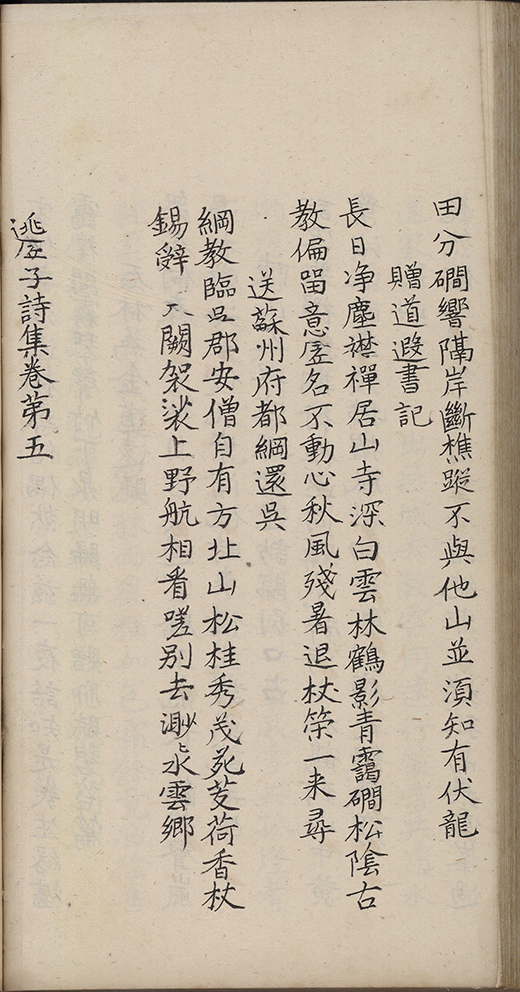 田分磵響隔岸斷樵蹤不與他山並須知有伏龍
贈道遐書記
長日净塵襟禪居山寺深白雲林鶴影青靄磵松陰古
教偏留意虛名不動心秋風殘暑退杖策一来尋
送蘇州府都綱還吳
綱教臨吳郡安僧自有方北山松桂秀茂苑芰荷香杖
錫辭天闕袈裟上野航相看嗟别去渺渺水雲鄉
逃虛子詩集卷第五